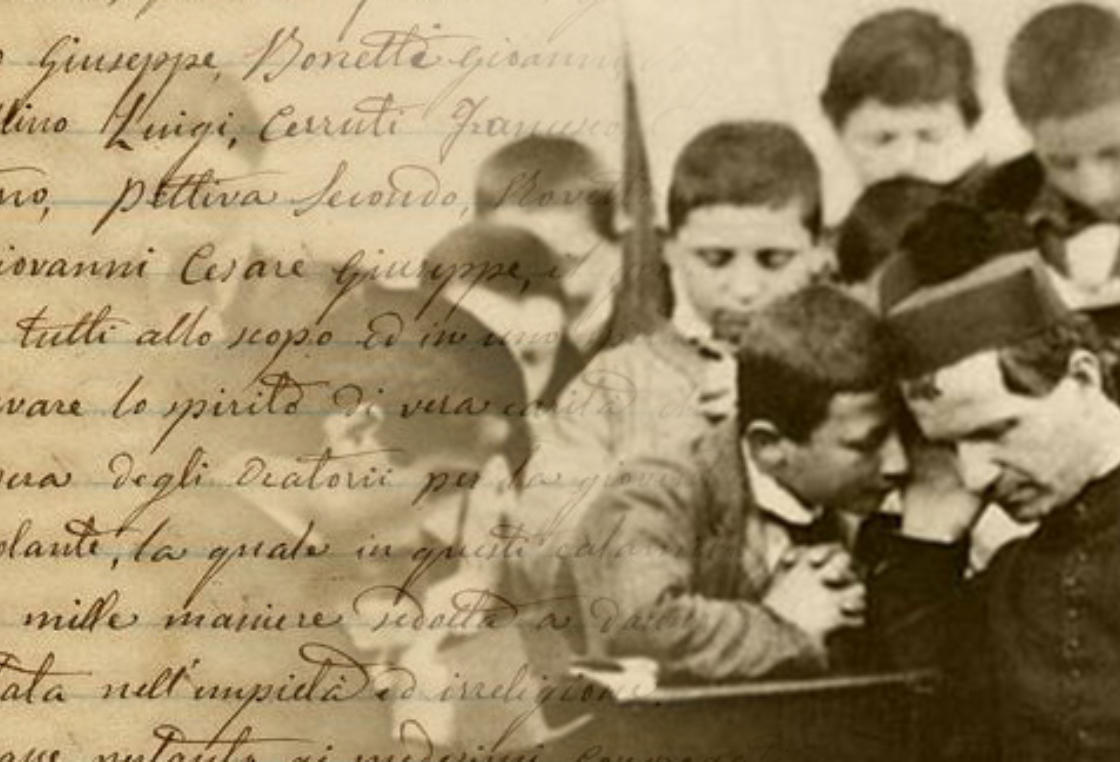 Giuseppe, Bonetti Giovanni
llino Luigi, Cerruti Francesco
no, Pettiva Secondo, Rove
iovanni Cesare Giuseppe, e
tutti allo scopo ed in uno
vare lo spirito di vera carità
era degli Oratorii per la gioven
olante, la quale in questi calami
mille maniere sedotta a da
tata nell'impietà ed irreligione
ai medesimi